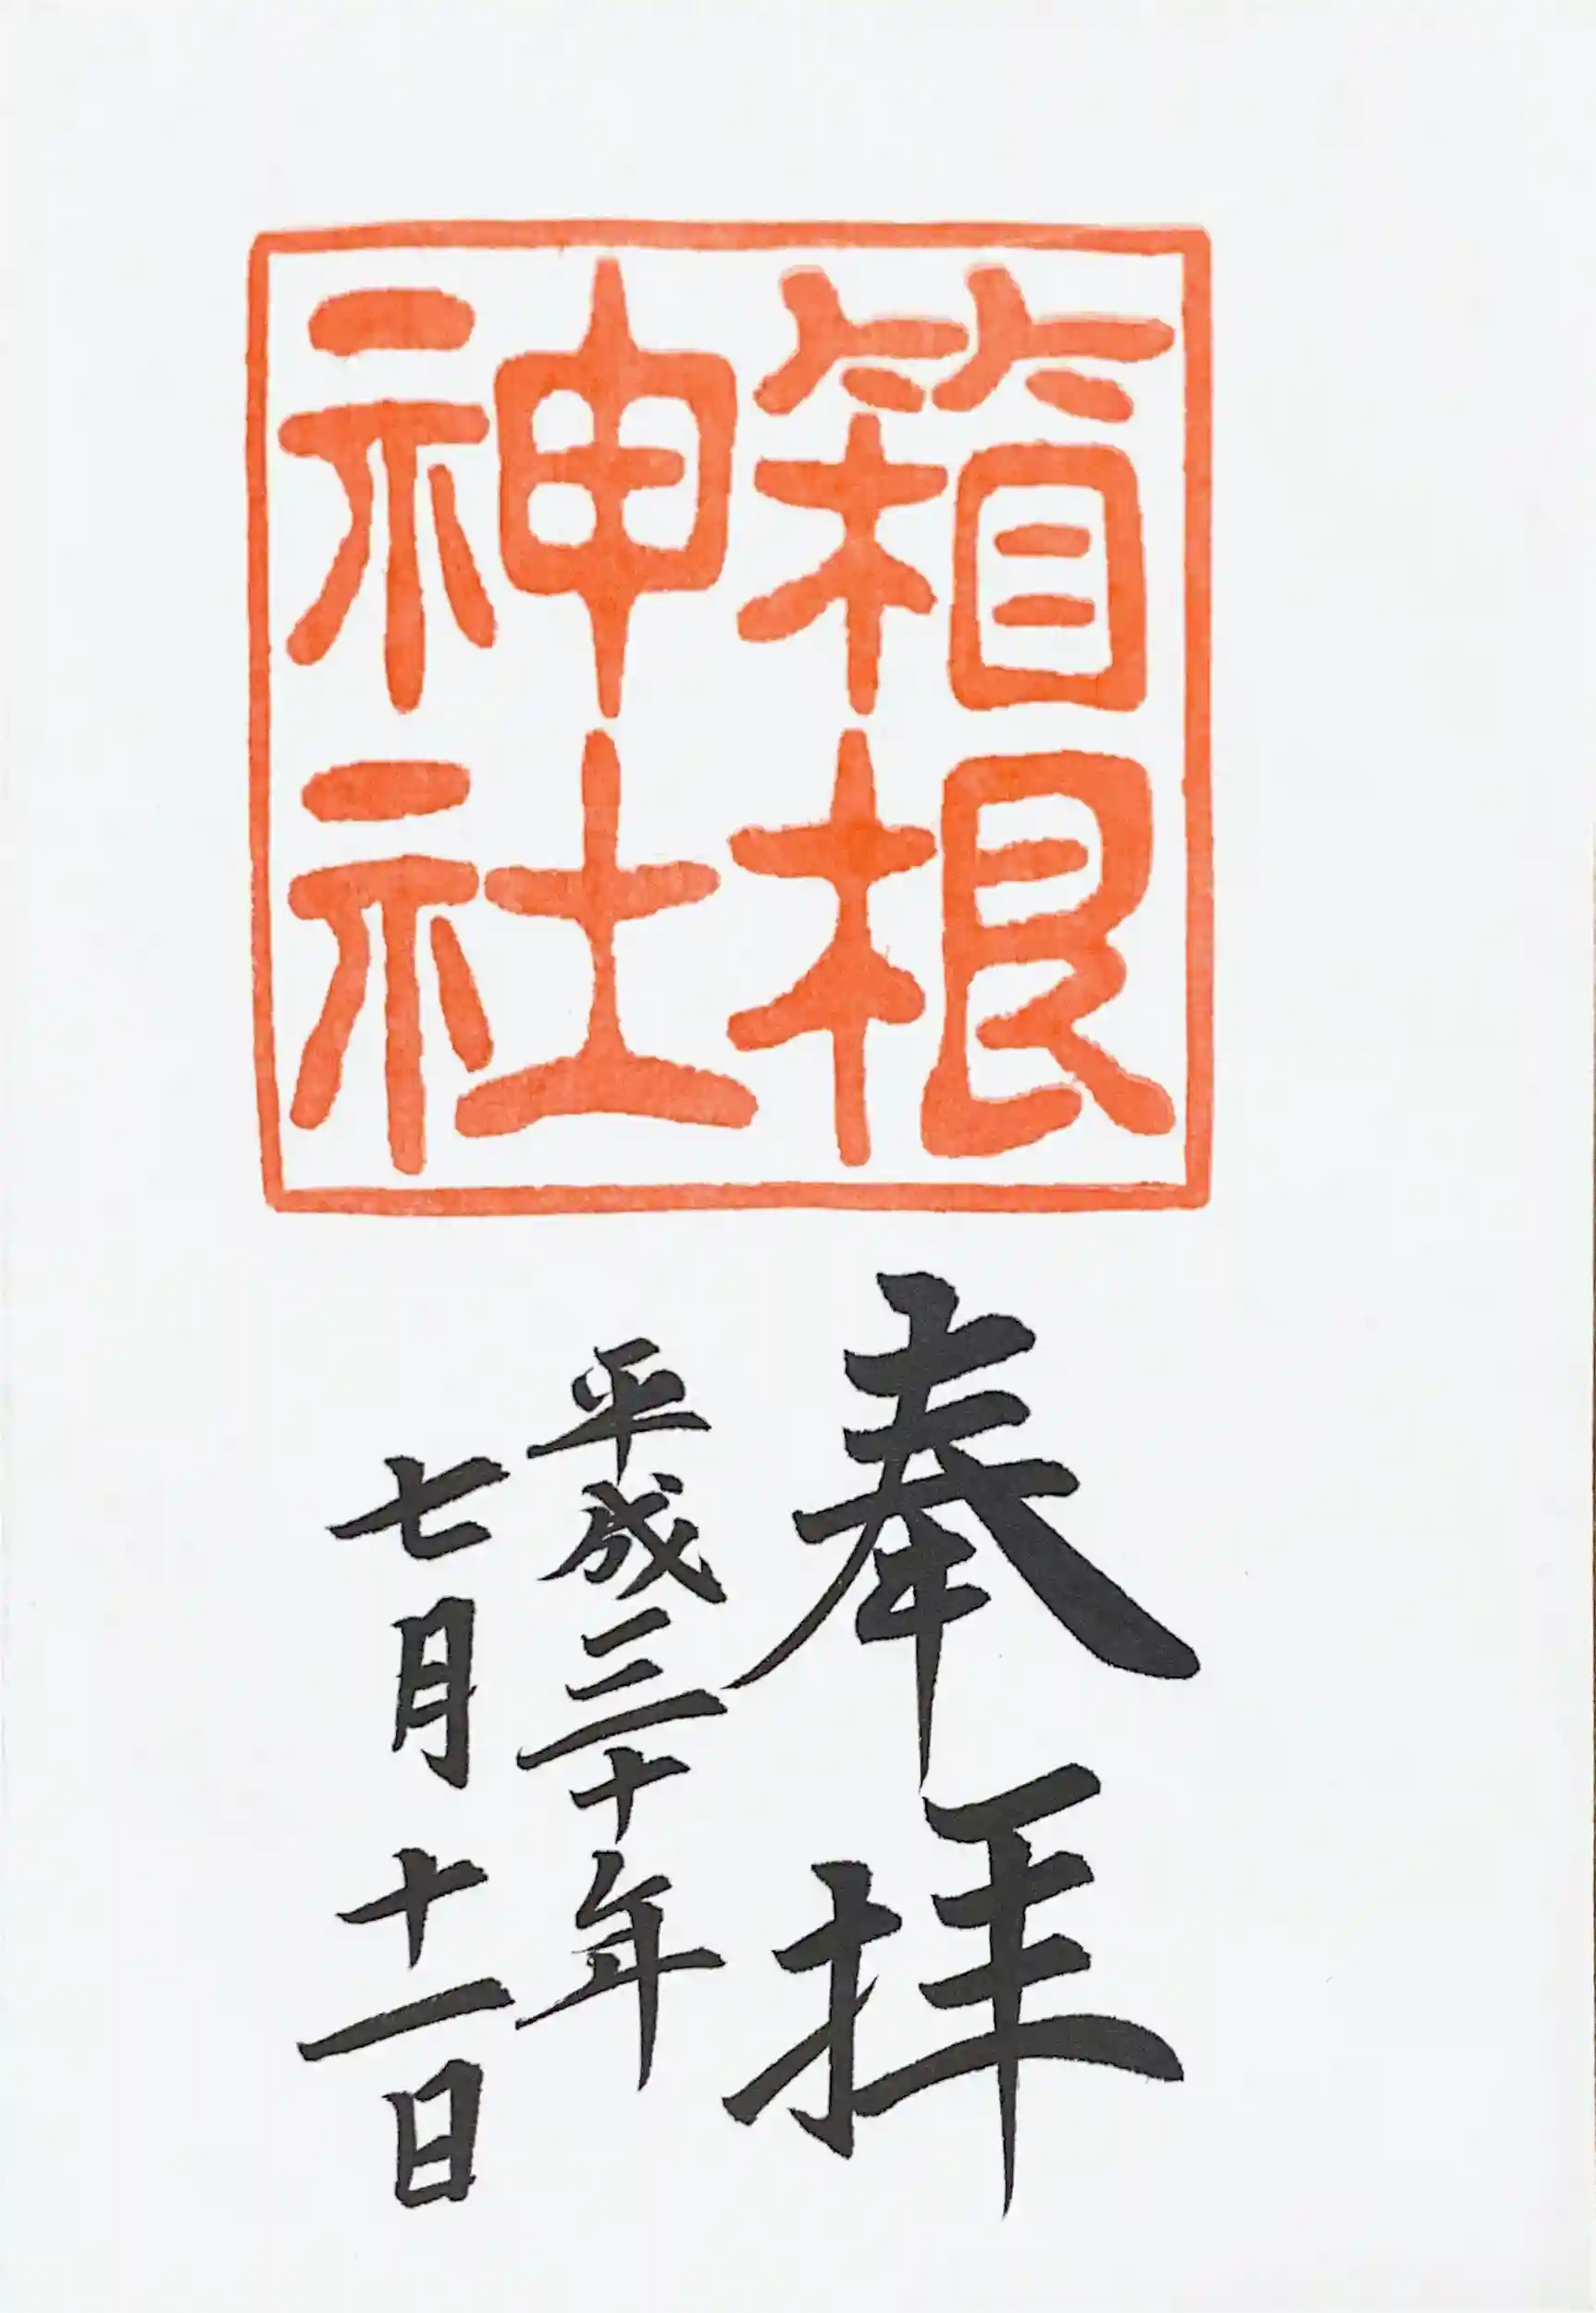 箱根
神社
奉拝
平成三十年
七月十一日